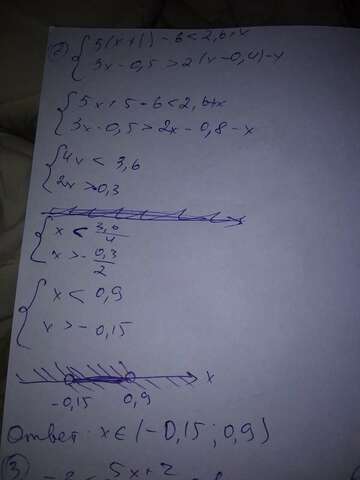 2) { 5(x+1)-6<2,6+x
3x-0,5>2(x-0,4)-x
{ 5x+5-6<2,6+x
3x-0,5>2x-0,8-x
{ 4x < 3,6
2x >-0,3
{ x < 3,6/4
x >- 0,3/2
{ x < 0,9
x >- 0,15
x
-0,15 0,9
Ответ: x∈(-0,15; 0,9)
3) 5x+2